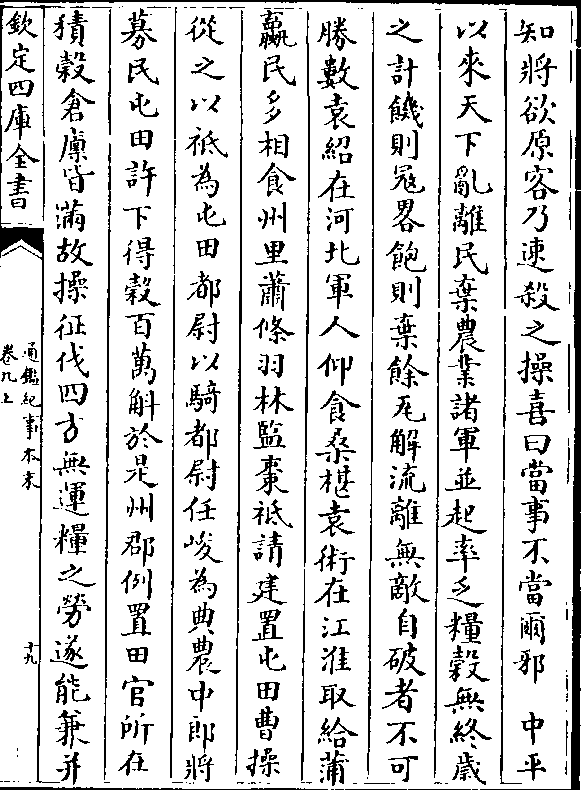 知將欲原客乃速殺之操喜曰當事不當爾邪　中平
以來天下亂離民棄農業諸軍並起率乏糧穀無終歲
之計饑則冦畧飽則棄餘瓦解流離無敵自破者不可
勝數袁紹在河北軍人仰食桑椹袁術在江淮取給蒲
蠃民多相食州里蕭條羽林監棗祗請建置屯田曹操
從之以祗為屯田都尉以騎都尉任峻為典農中郎將
募民屯田許下得穀百萬斛於是州郡例置田官所在
積穀倉廩皆滿故操征伐四方無運糧之勞遂能兼并
欽定四庫全書
通鑑紀事本末
卷九上
十九